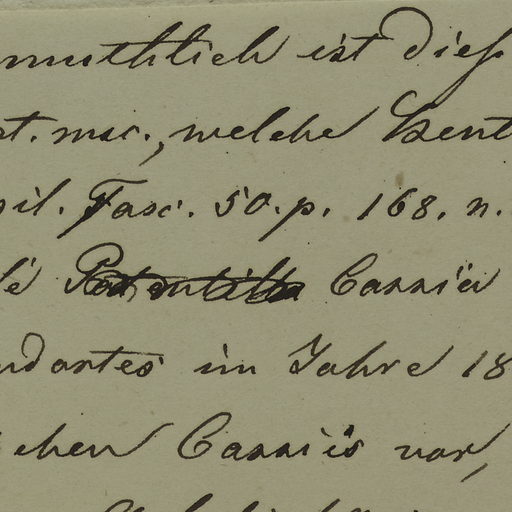 muthlich ist dieß
st. msc., welche Bent
sil. Fasc. 50. p. 168. n.
lé Potentilla Cassia
ndortes im Jahre 18
chen Cassiis vor,